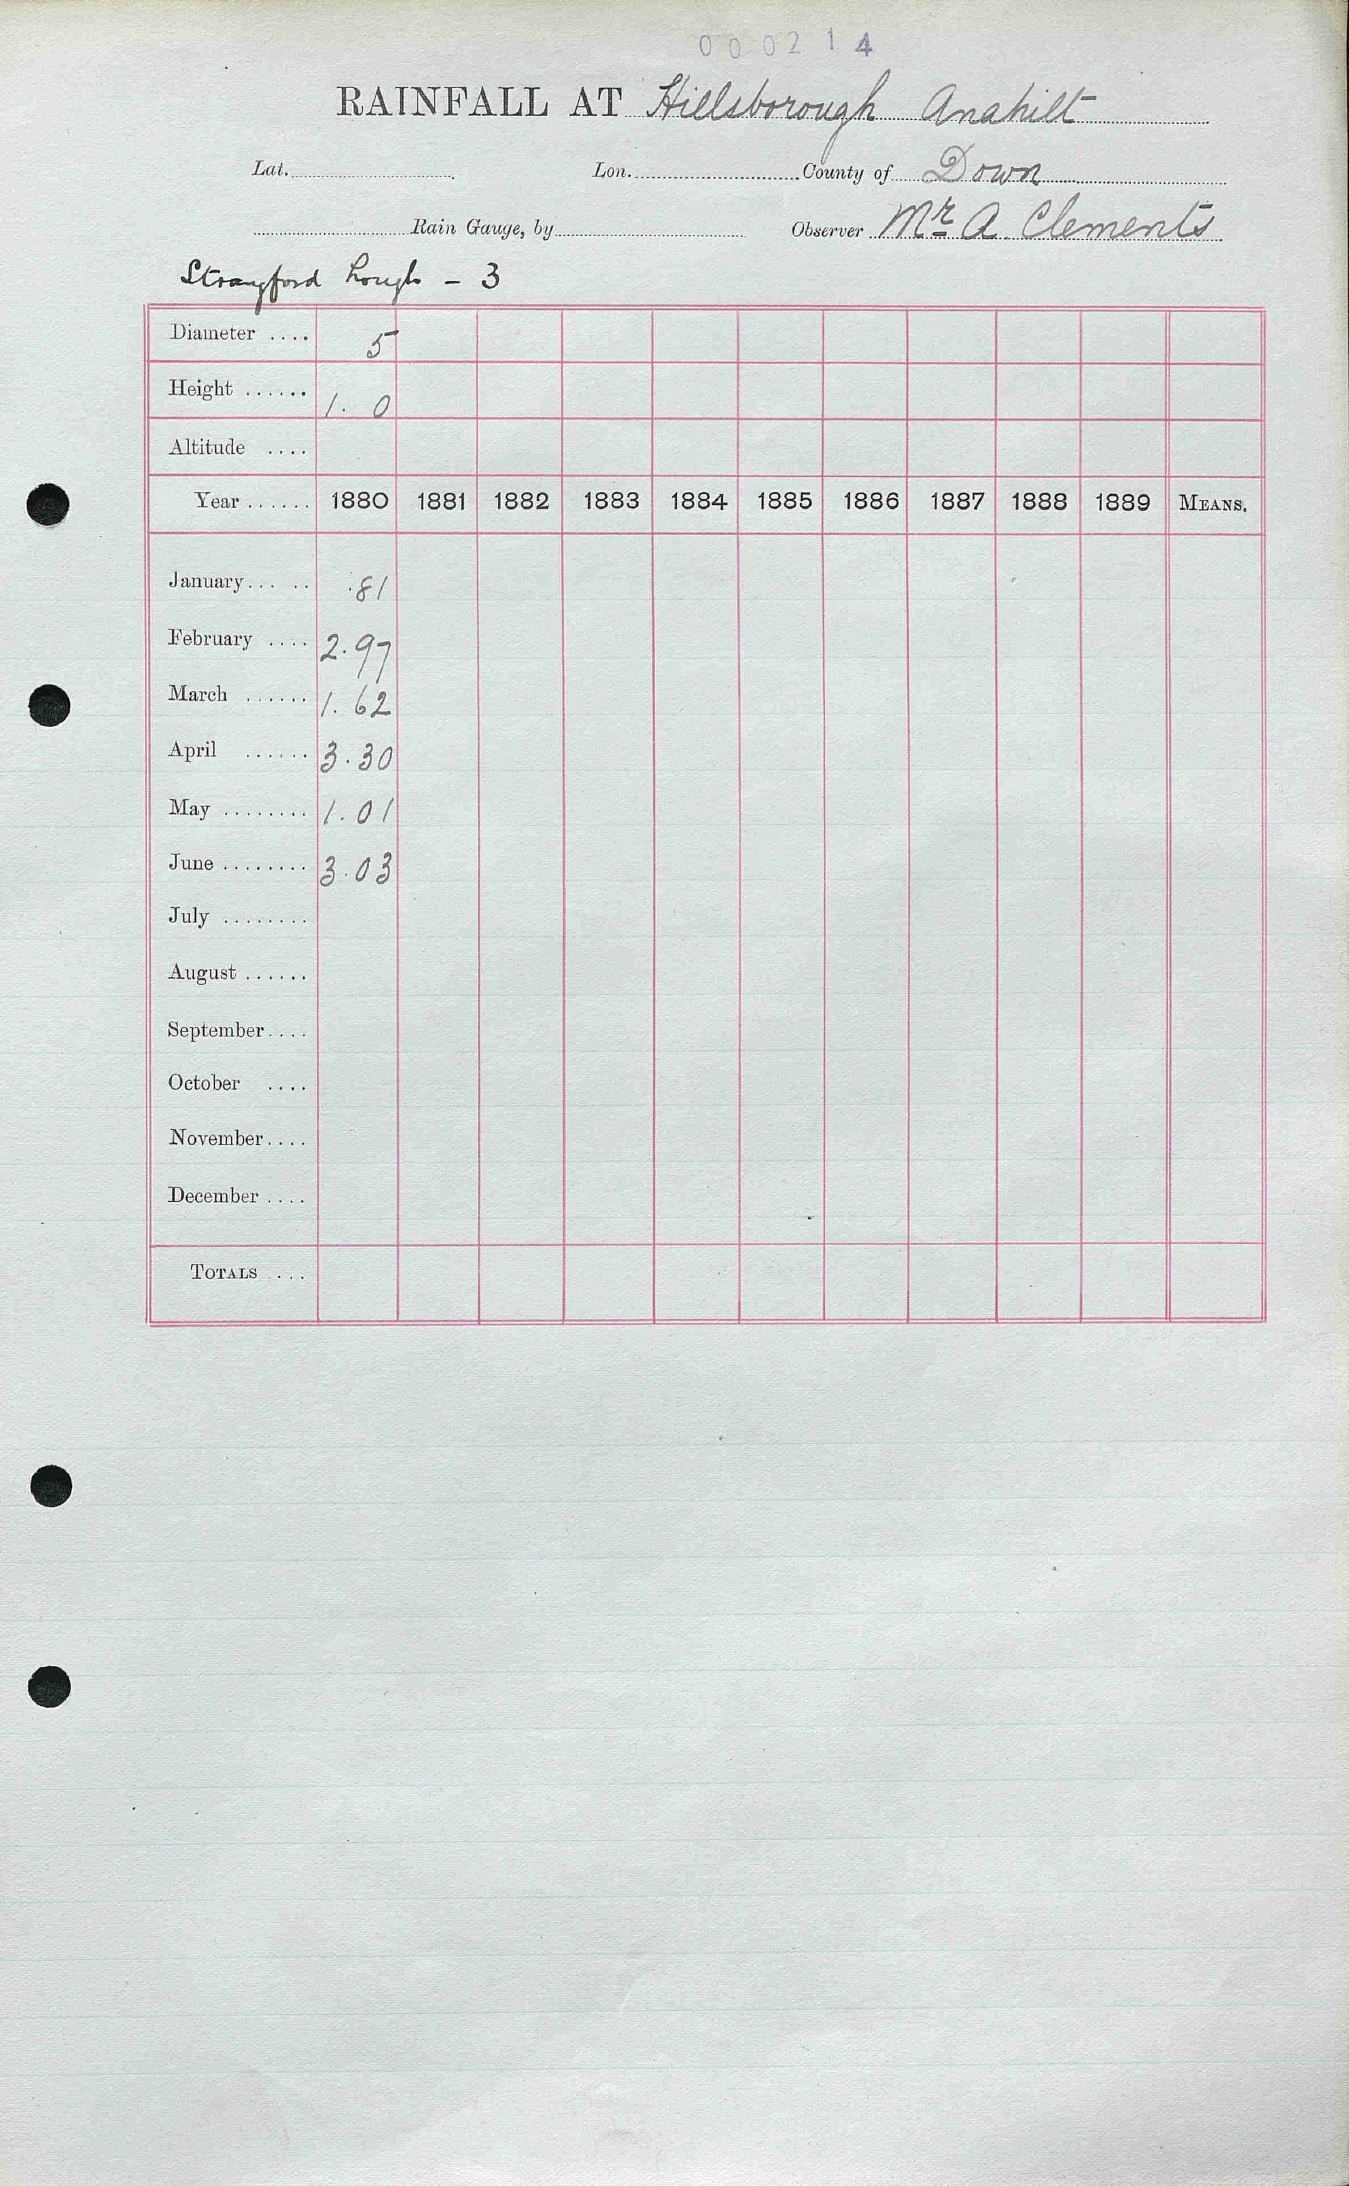 000214
RAINFALL AT Hillsborough Anahilt
Lat. Lon. County of Down
Rain Gauge, by Observer Mr A. Clements
Strangford Lough - 3
Diameter .... 5
Height ...... 1. 0
Altitude ....
Year ...... 1880 1881 1882 1883 1884 1885 1886 1887 1888 1889 MEANS.
January... .. .81
February .... 2.97
March ...... 1.62
April ...... 3.30
May ........ 1.01
June ........ 3.03
July ........
August ......
September....
October ....
November....
December ....
TOTALS ....